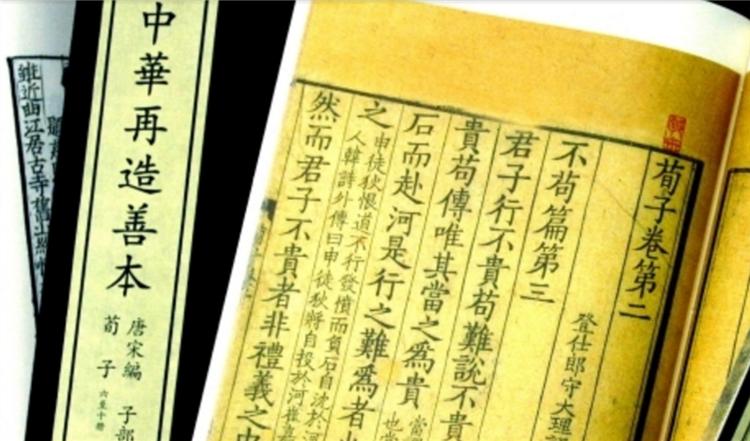 荀子卷第二
登仕郎守大理
不苟篇第三
君子行不貴苟難說不貴
貴苟傳唯其當之爲貴
石而赴河是行之難爲者也
之申徒狄恨道不行發憤而負石自沈於河
人韓詩外傳曰申徒狄將自投於河崔嘉
然而君子不貴者非禮義之中
中華再造善本
唐宋編 子部
荀子
雖近曲江居古寺舊山終